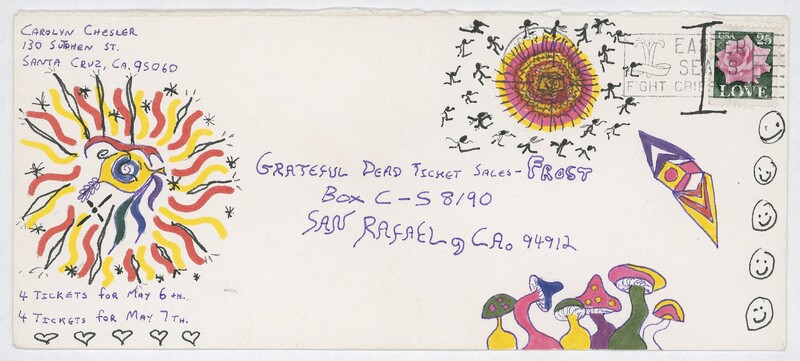 Carolyn Chesler
130 Sutphen St.
Santa Cruz, CA. 95060
EASTER
SEALS
FIGHT CRIP
USA 25
LOVE
I
Grateful Dead Ticket Sales - Frost
Box C-S 8190
San Rafael, CA. 94912
4 Tickets for May 6th.
4 Tickets for May 7th.